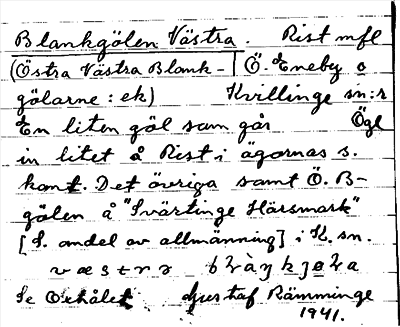 Blankgölen Västra. Rist mfl
(Östra Västra Blank- Ö. Eneby o
gölarne: ek) Kvillinge sn:r
En liten göl som går Ögl
in litet å Rist:i ägornas s.
kant. Det övriga samt Ö. B-
gölen å "Svärtinge Härsmark"
[S. andel av allmänning] i K. sn.
Se Oxhålet Gustaf Rämminge
1941.